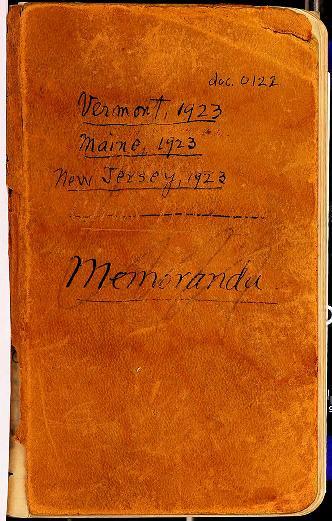 doc. 0122
Vermont, 1923
Maine, 1923
New Jersey, 1923
Memoranda